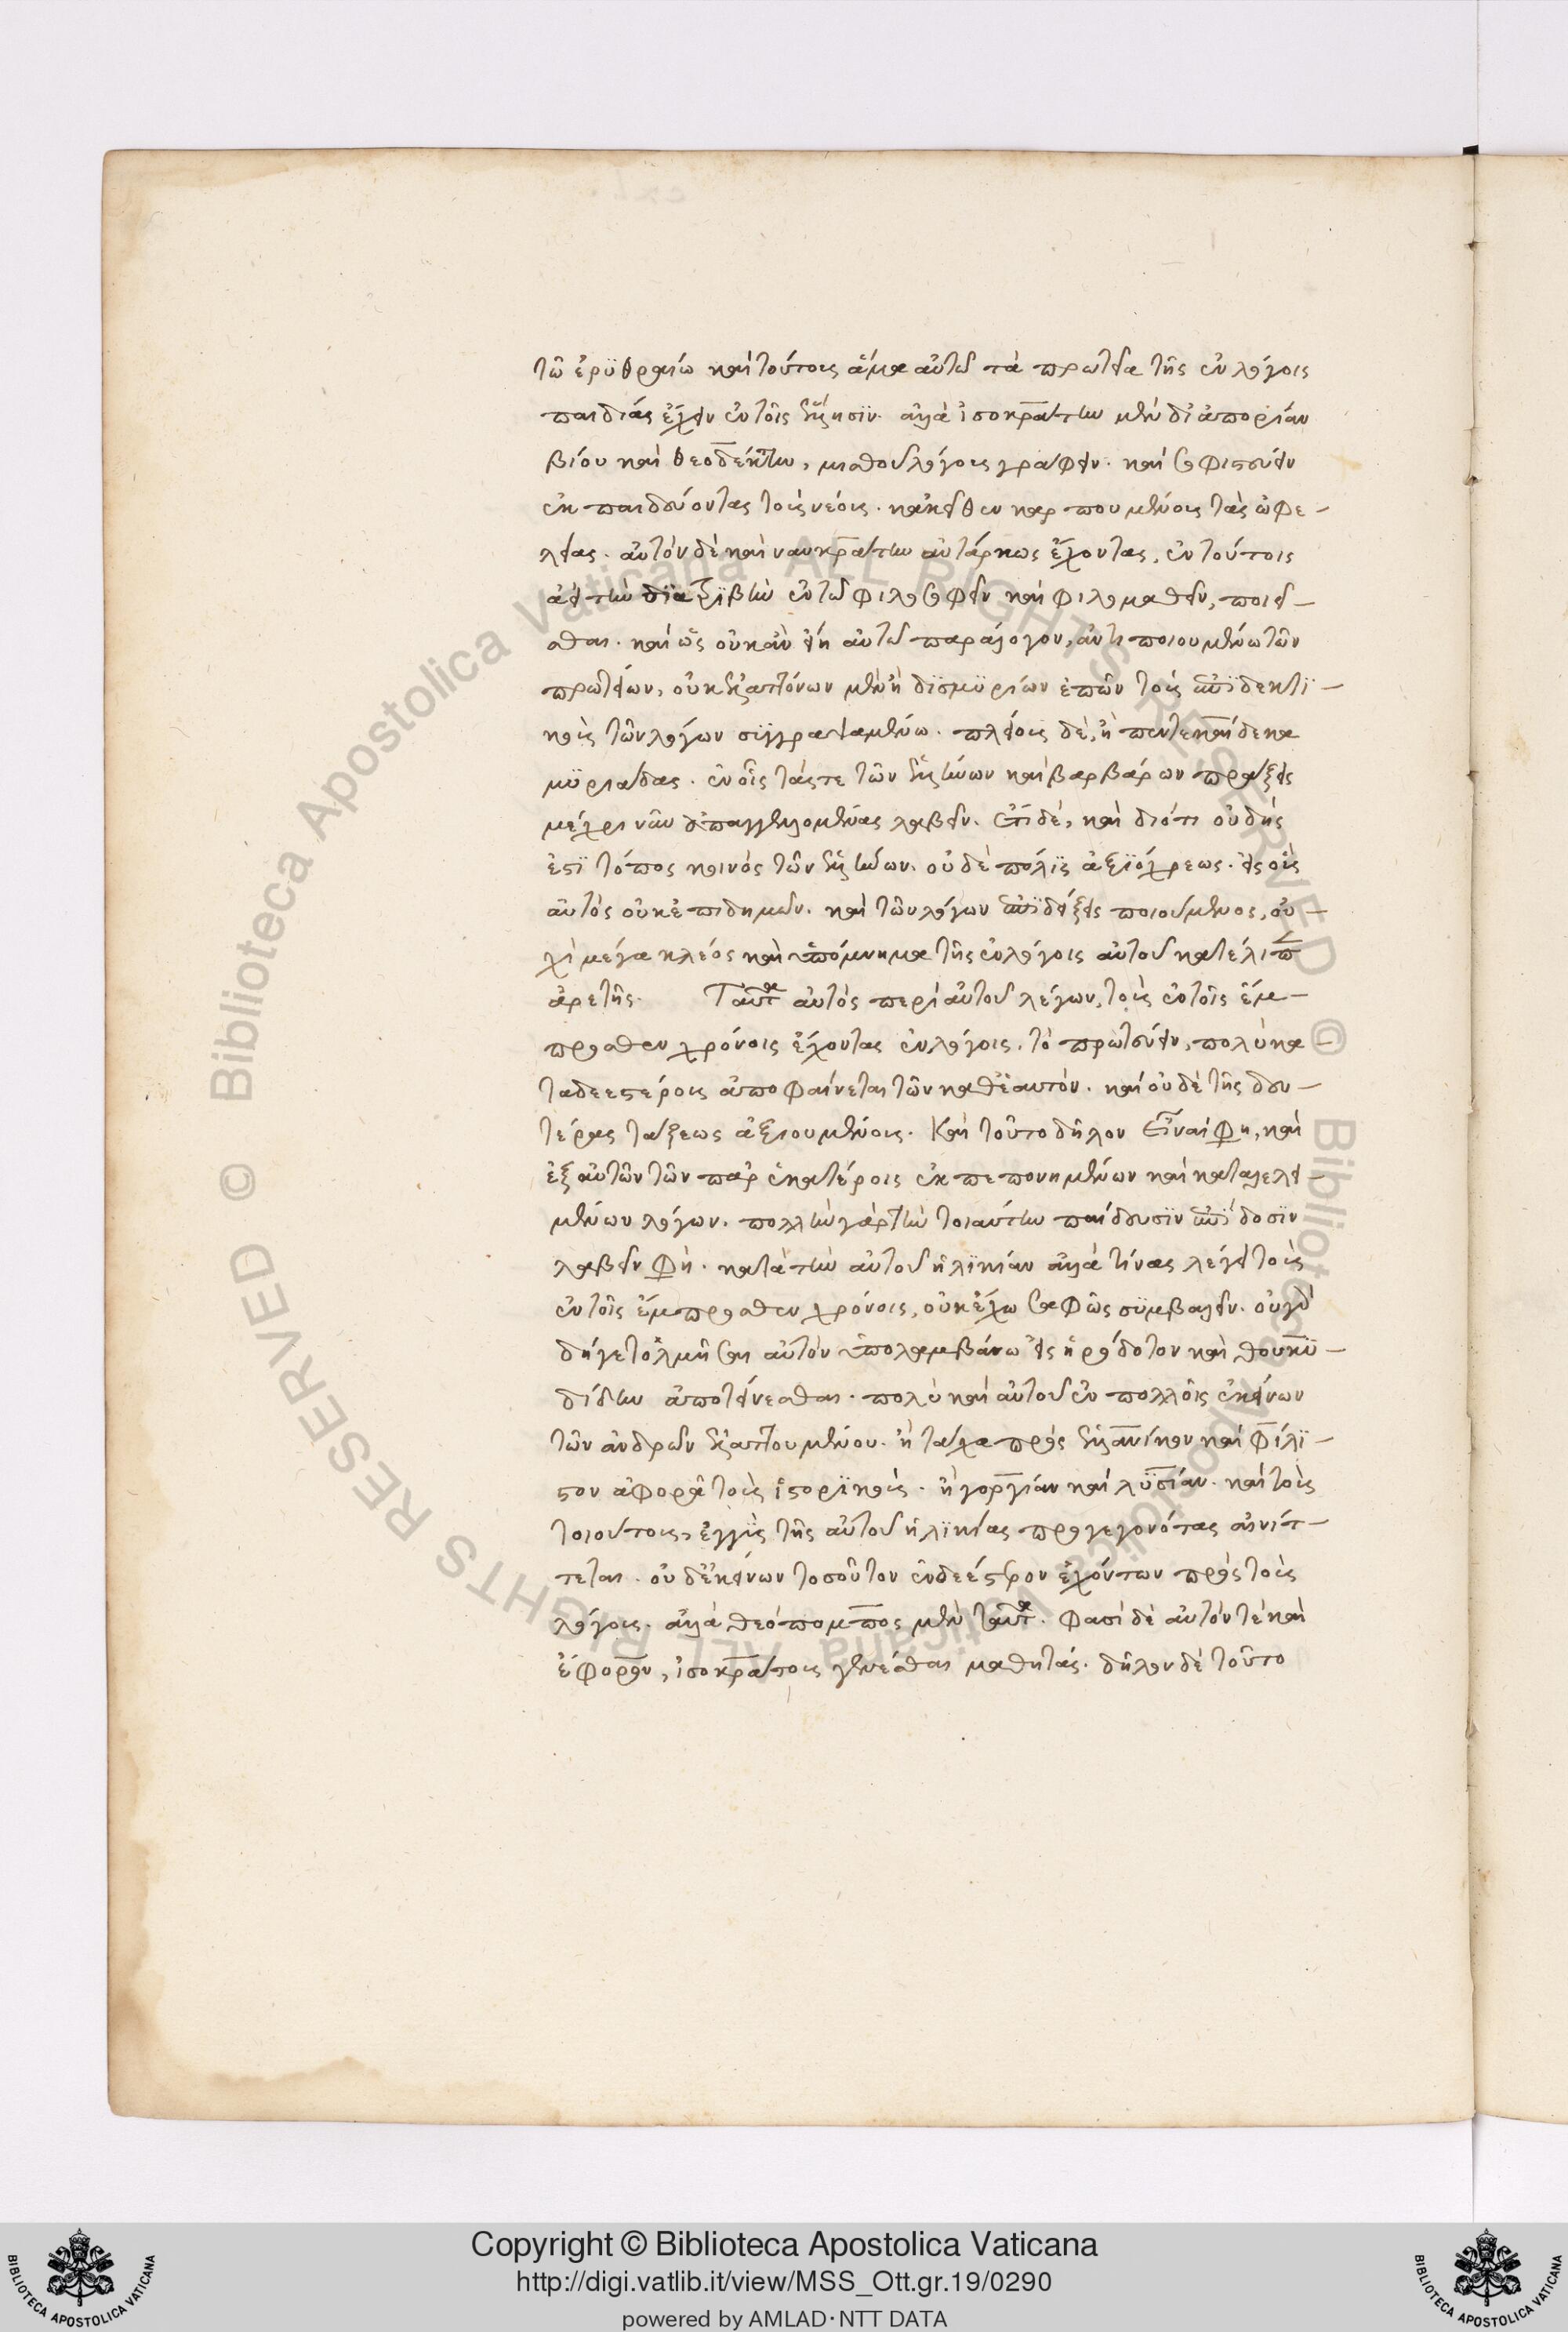 τῶ ἐρυθραίω καὶ τούτους ἅμα αὐτῶ τὰ πρωτεῖα τῆς ἐν λόγοις
παιδιάς ἔχειν ἐν τοῖς ἕλλησιν. ἀλλὰ ἰσοκράτην μὲν δι' ἀπορίαν
βίου καὶ θεοδέκτην, μισθοῦ λόγους γράφειν. καὶ σοφιστεύειν
ἐκπαιδεύοντας τοὺς νέους. κἀκεῖθεν καρπουμένους τὰς ὠφε-
λείας. αὐτὸν δὲ καὶ ναυκράτην αὐτάρκως ἔχοντας, ἐν τούτοις
ἀεὶ τὴν διατριβὴν ἐν τῶ φιλοσοφεῖν καὶ φιλομαθεῖν, ποιεῖ-
σθαι. καὶ ὡς οὐκ ἂν εἴη αὐτῶ παράλογον, ἀντιποιουμένω τῶν
πρωτείων, οὐκ ἐλαττόνων μὲν ἢ δισμυρίων ἐπῶν τοὺς ἐπιδεικτι-
κοὺς τῶν λόγων συγγραψαμένω. πλείους δὲ, ἢ πεντεκαίδεκα
μυριάδας. ἐν οἷς τάς τε τῶν ἑλλήνων καὶ βαρβάρων πράξεις
μέχρι νῦν ἀπαγγελλομένας λαβεῖν. ἔτι δὲ, καὶ διότι οὐδεὶς
ἐστὶ τόπος κοινὸς τῶν ἑλλήνων. οὐδὲ πόλις ἀξιόχρεως. εἰς οὓς
αὐτὸς οὐκ ἐπιδημῶν. καὶ τῶν λόγων ἐπιδείξεις ποιούμενος, οὐ-
χὶ μέγα κλέος καὶ ὑπόμνημα τῆς ἐν λόγοις αὐτοῦ κατέλιπ
ἀρετῆς. Ταῦτα αὐτὸς περὶ αὐτοῦ λέγων, τοὺς ἐν τοῖς ἔμ-
προσθεν χρόνοις ἔχοντας ἐν λόγοις, τὸ πρωτεύειν, πολὺ κα-
ταδεεστέρους ἀποφαίνεται τῶν καθ' ἑαυτόν. καὶ οὐδὲ τῆς δευ-
τέρας τάξεως ἀξιουμένους. Καὶ τοῦτο δῆλον εἶναί φη, καὶ
ἐξ αὐτῶν τῶν παρ' ἑκατέροις ἐκπεπονημένων καὶ καταλελει-
μένων λόγων. πολλὴν γὰρ τὴν τοιαύτην παίδευσιν ἐπίδοσιν
λαβεῖν φη. κατὰ τὴν αὐτοῦ ἡλικίαν ἀλλὰ τίνας λέγει τοὺς
ἐν τοῖς ἔμπροσθεν χρόνοις, οὐκ ἔχω σαφῶς συμβαλεῖν. οὐ γὰρ
δή γε τολμῆσαι αὐτὸν ὑπολαμβάνω εἰς ἡρόδοτον καὶ θουκυ-
δίδην ἀποτείνεσθαι. πολὺ καὶ αὐτοῦ ἐν πολλοῖς ἐκείνων
τῶν ἀνδρῶν ἐλαττουμένου. ἢ τάχα πρὸς ἑλλάνικον καὶ φίλι-
στον ἀφορᾶ τοὺς ἱστορικοὺς. ἢ γοργίαν καὶ λυσίαν. καὶ τοὺς
τοιούτους, ἐγγὺς τῆς αὐτοῦ ἡλικίας προγεγονότας αἰνίτ-
τεται. οὐδ' ἐκείνων τοσοῦτον ἐνδεέστερον ἐχόντων πρὸς τοὺς
λόγους. ἀλλὰ θεόπομπος μὲν ταῦτα. φασὶ δὲ αὐτόν τὲ καὶ
ἔφορον, ἰσοκράτους γενέσθαι μαθητάς. δῆλον δὲ τοῦτο
Copyright © Biblioteca Apostolica Vaticana
http://digi.vatlib.it/view/MSS_Ott.gr.19/0290
powered by AMLAD·NTT DATA
BIBLIOTECA APOSTOLICA VATICANA
BIBLIOTECA APOSTOLICA VATICANA
Biblioteca Apostolica Vaticana ALL RIGHTS RESERVED ©
Biblioteca Apostolica Vaticana ALL RIGHTS RESERVED ©